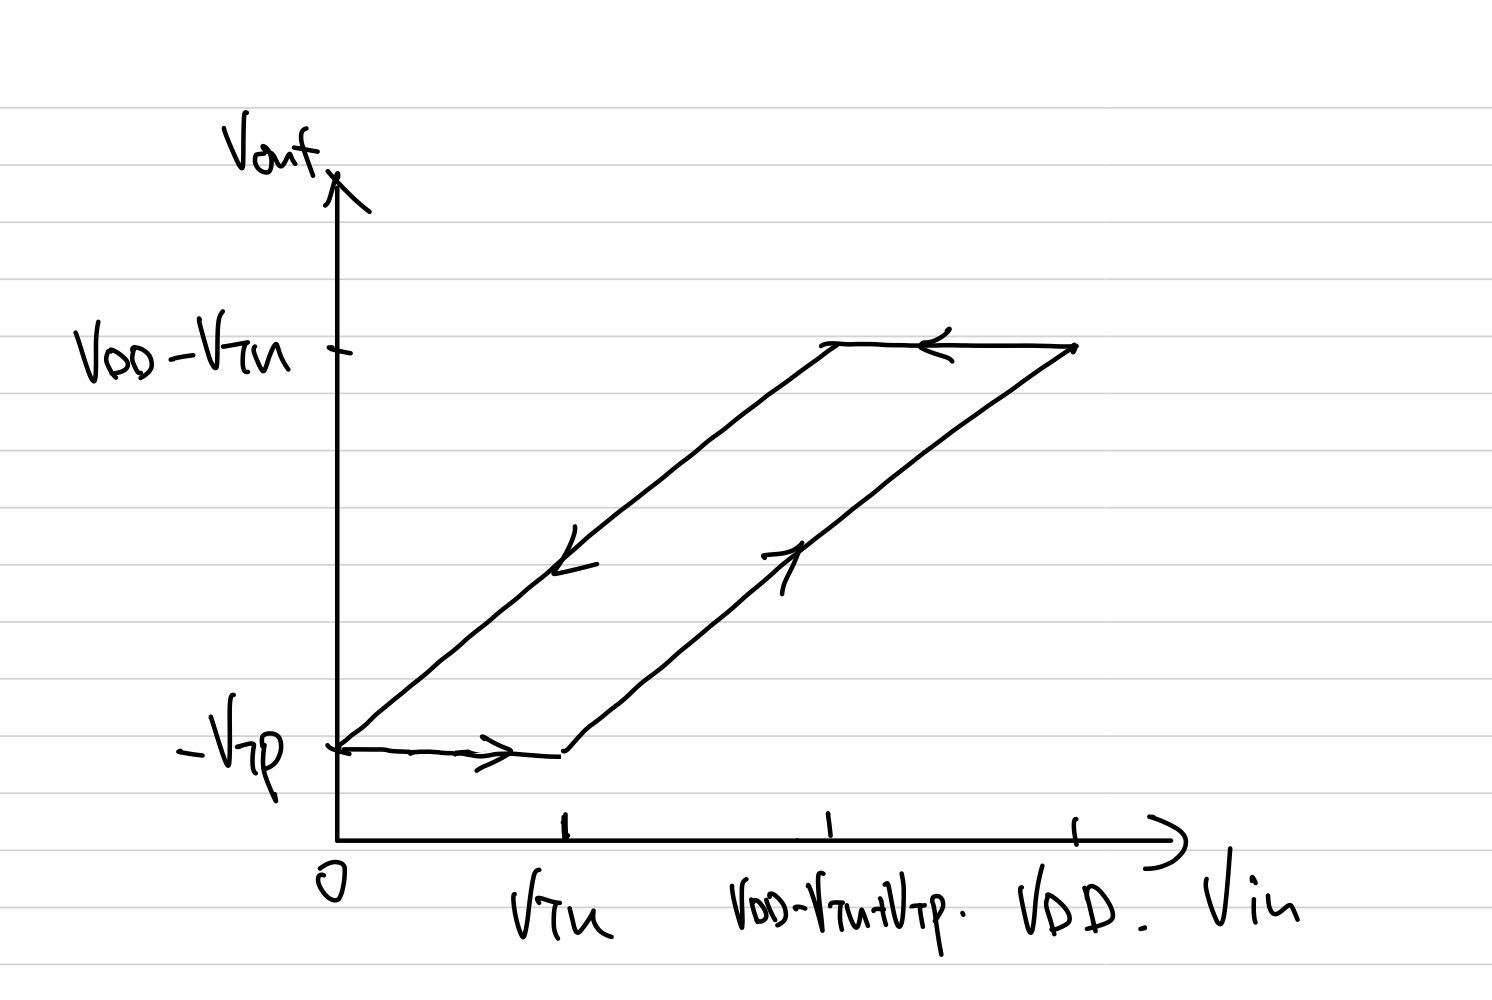 Vout
VDD-VTn
-VTp
0
VTn
VDD-VTn+VTp.
VDD.
Vin